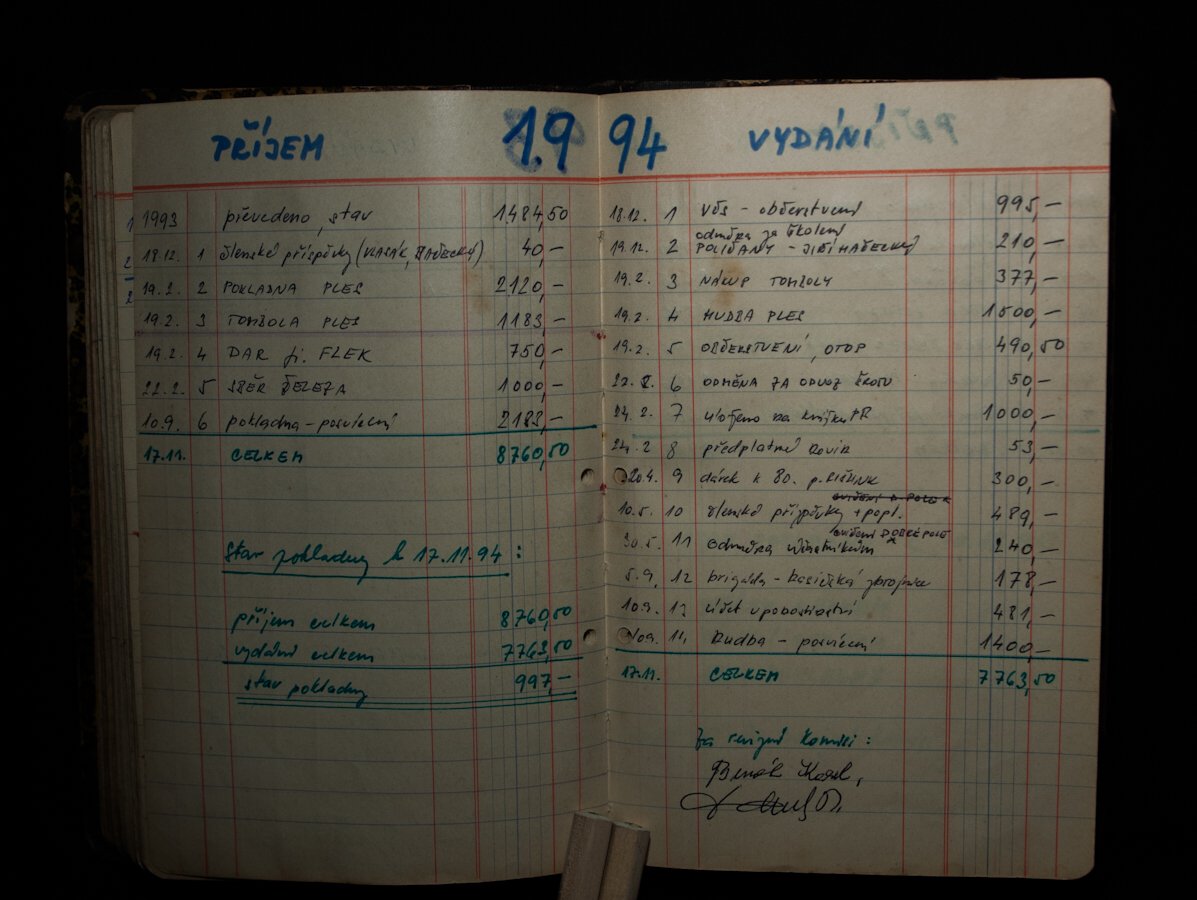 PŘÍJEM 1.9
1993 převedeno, stav 1484,50
18.12. 1 členské příspěvky (VLASÁK, MAŘECKÝ) 40,-
19.2. 2 POKLADNA PLES 2120,-
19.2. 3 TOMBOLA PLES 1183,-
19.2. 4 DAR ji. FLEK 750,-
22.2. 5 SBĚR ŽELEZA 1000,-
10.9. 6 pokladna - posvícení 2183,-
17.11. CELKEM 8760,50
Stav pokladny k 17.11.94 :
příjem celkem 8760,50
vydání celkem 7763,50
stav pokladny 997,-
94 VYDÁNÍ
18.12. 1 VČS - občerstvení 995,-
odměna za školení
19.12. 2 POLIČANY - JIŘÍ MAŘECKÝ 210,-
19.2. 3 NÁKUP TOMBOLY 377,-
19.2. 4 HUDBA PLES 1500,-
19.2. 5 OBČERSTVENÍ, OTOP 490,50
22.2. 6 ODMĚNA ZA ODVOZ ŠROTU 50,-
24.2. 7 uloženo na knížku PR 1000,-
24.2 8 předplatné 53,-
20.4. 9 dárek k 80. p. 300,-
10.5. 10 členské příspěvky + popl. 489,-
cvičení DOBRÉ POLE
30.5. 11 odměna účastníkům 240,-
5.9. 12 brigáda - hasičská zbrojnice 178,-
10.9. 13 účet v pohostinství 481,-
10.9. 14 hudba - posvícení 1400,-
17.11. CELKEM 7763,50
Za revizní komisi :
Karel,